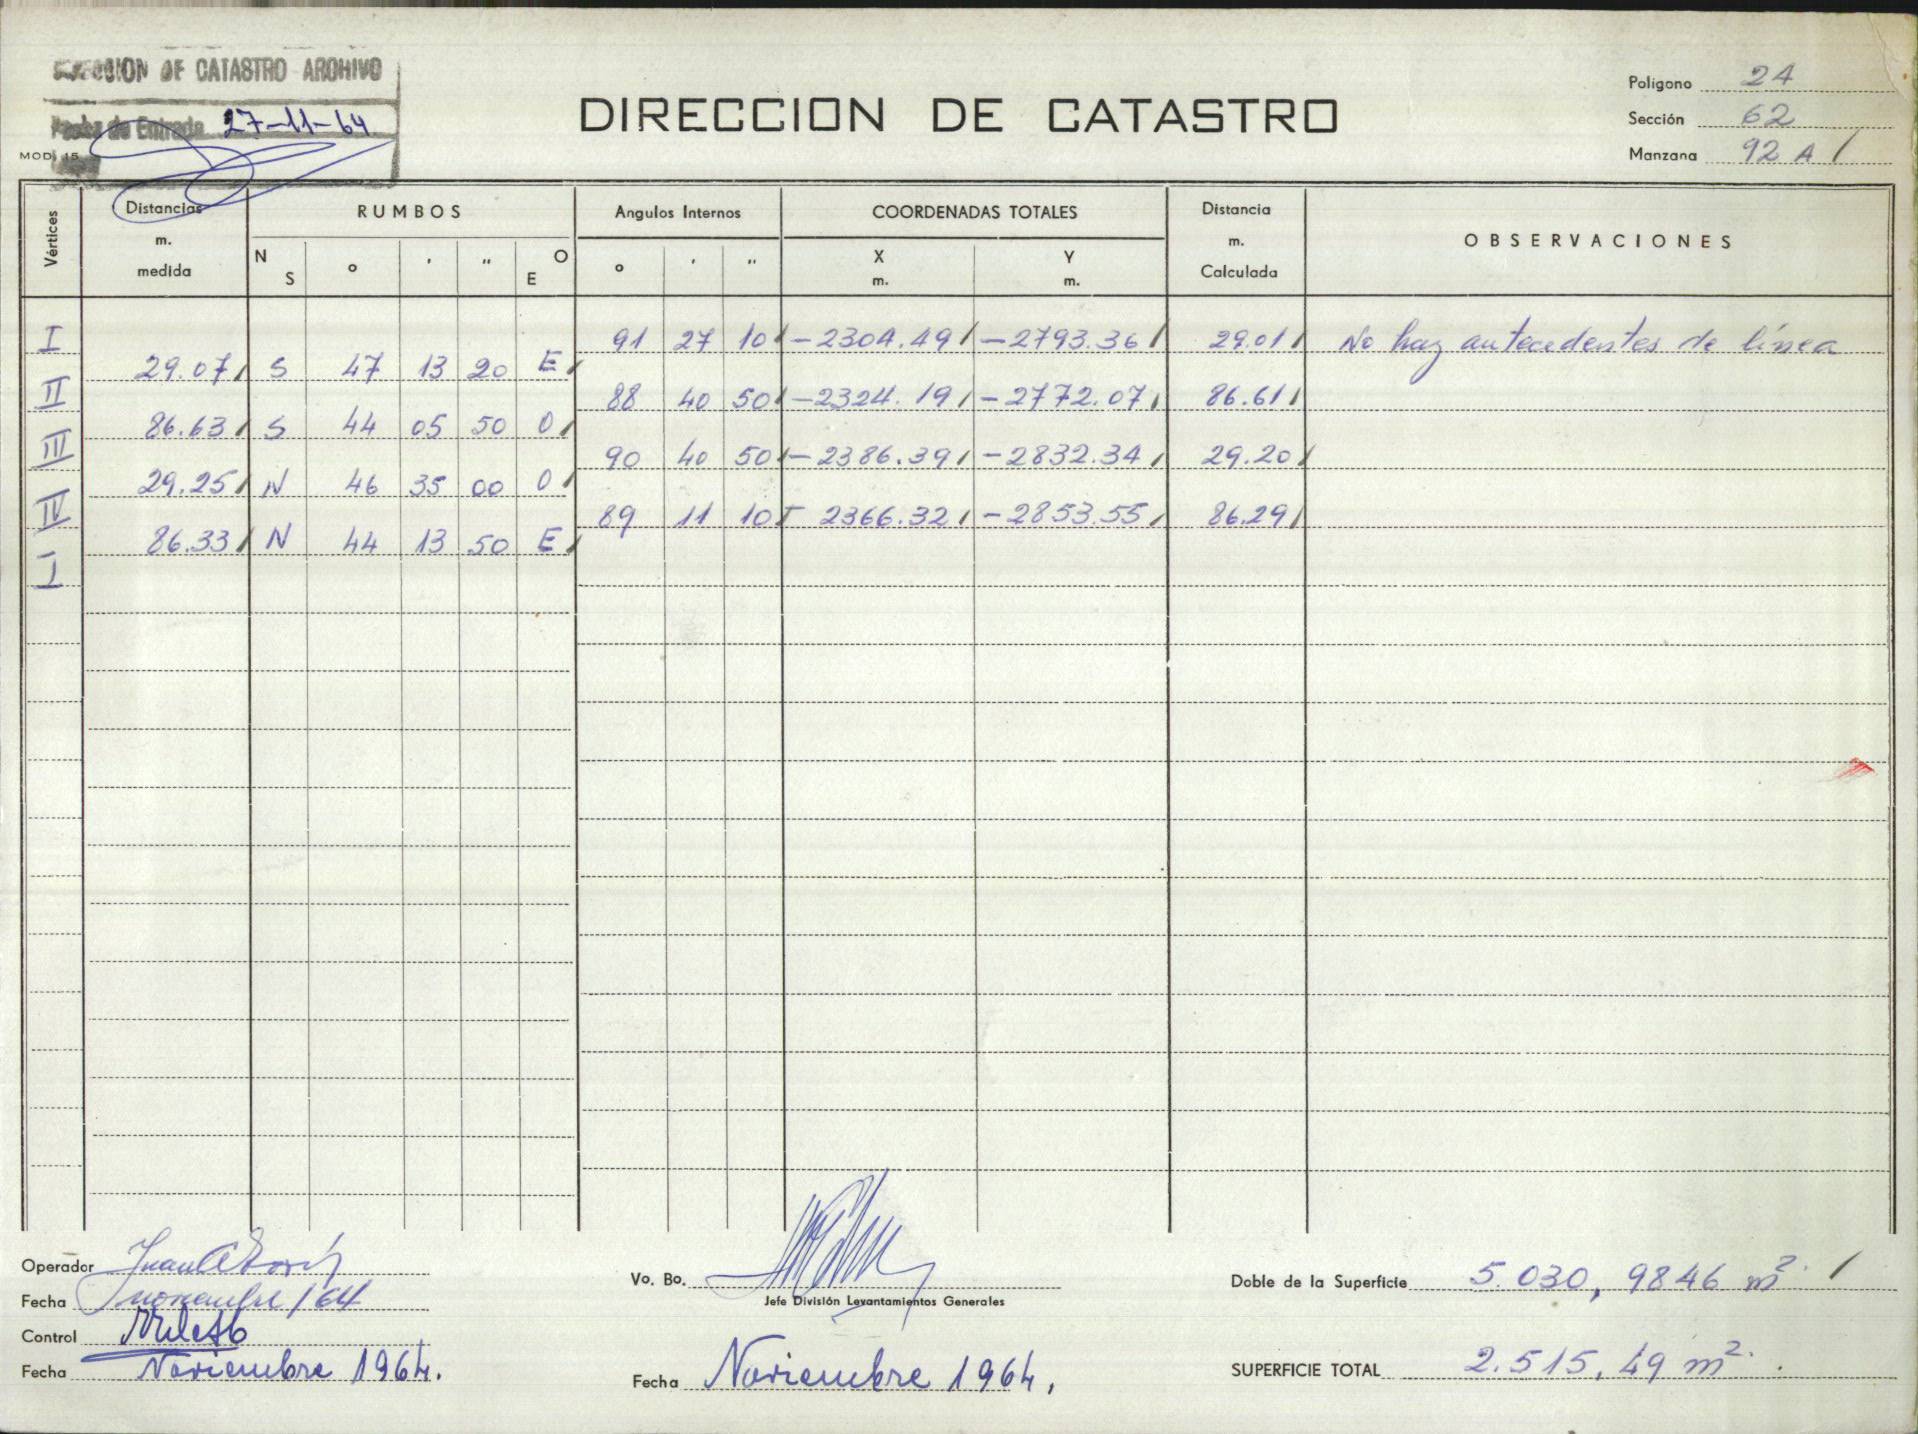 DIRECCION DE CATASTRO ARCHIVO
Fecha de Entrada 27-11-64
MOD. 15
DIRECCION DE CATASTRO
Polígono 24
Sección 62
Manzana 92 A /
Vértices Distancias m. medida RUMBOS Angulos Internos COORDENADAS TOTALES Distancia m. Calculada OBSERVACIONES
N S ° ' " O E ° ' " X m. Y m.
I 91 27 10 -2304.49 -2793.36 29.01 No hay antecedentes de línea
29.07 S 47 13 20 E
II 88 40 50 -2324.19 -2772.07 86.61
86.63 S 44 05 50 O
III 90 40 50 -2386.39 -2832.34 29.20
29.25 N 46 35 00 O
IV 89 11 10 - 2366.32 -2853.55 86.29
86.33 N 44 13 50 E
I
Operador Juan
Fecha noviembre/64
Control
Fecha Noviembre 1964.
Vo. Bo.
Jefe División Levantamientos Generales
Fecha Noviembre 1964.
Doble de la Superficie 5.030,9846 m². /
SUPERFICIE TOTAL 2.515,49 m².